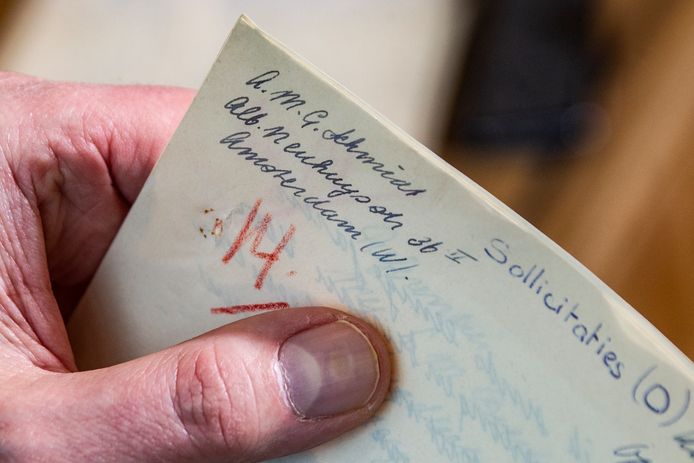 A. M. G. Schmidt
Alb. Neuhuysstr 36 II
Amsterdam (W).
14.
Sollicitaties (O)